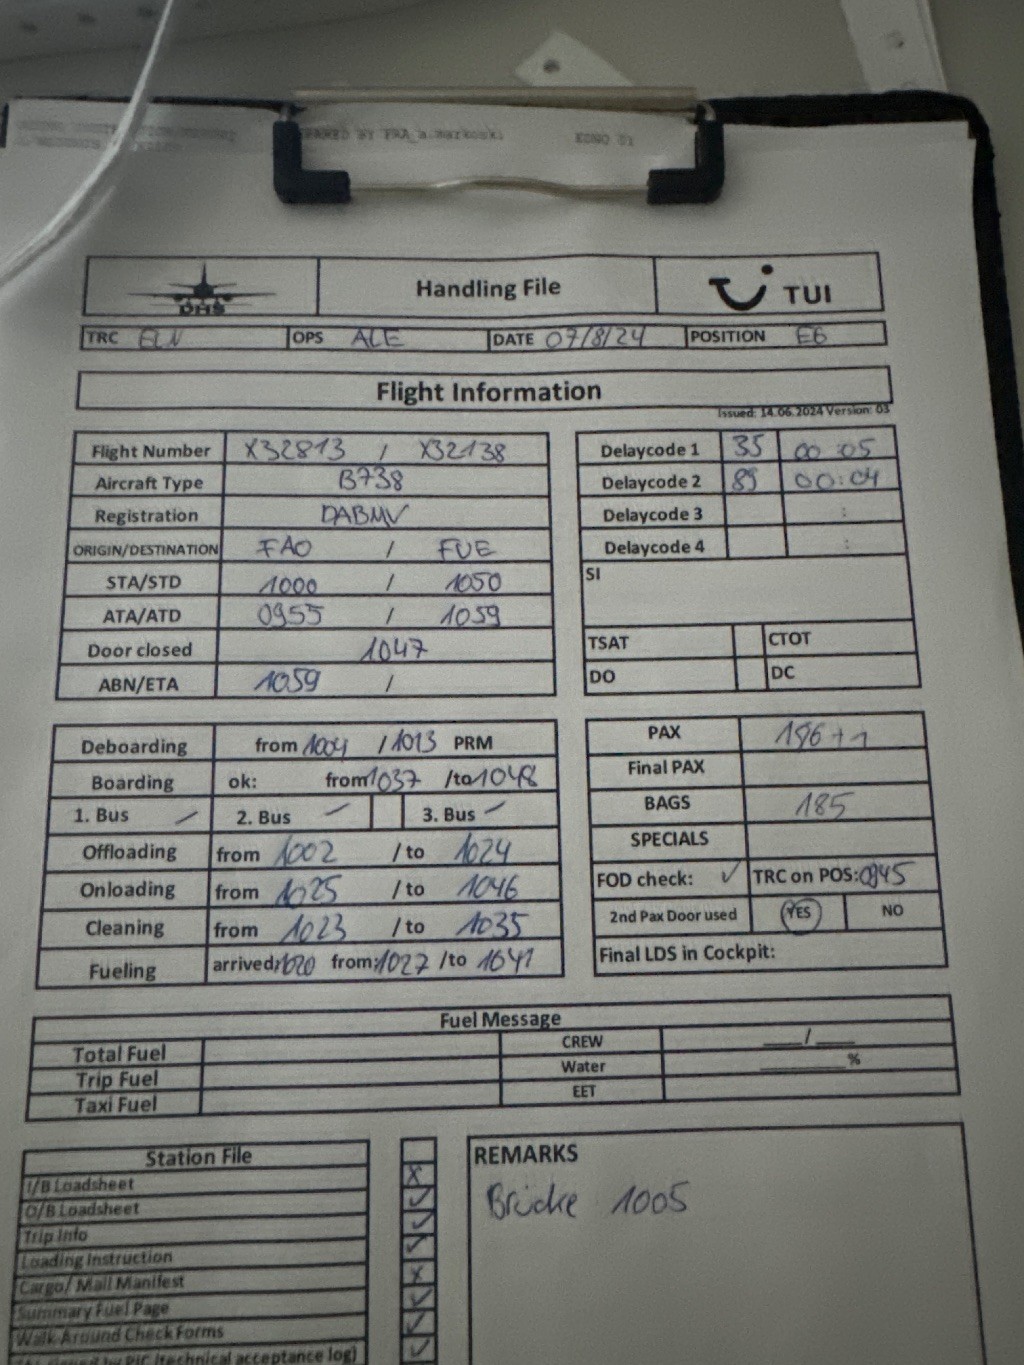 DHS Handling File TUI
TRC ELN OPS ALE DATE 07/8/24 POSITION E6
Flight Information
Issued: 14.06.2024 Version: 03
Flight Number X32813 / X32138
Aircraft Type B738
Registration DABMV
ORIGIN/DESTINATION FAO / FUE
STA/STD 1000 / 1050
ATA/ATD 0955 / 1059
Door closed 1047
ABN/ETA 1059 /
Delaycode 1 35 00:05
Delaycode 2 89 00:04
Delaycode 3 :
Delaycode 4 :
SI
TSAT CTOT
DO DC
Deboarding from 1004 / 1013 PRM
Boarding ok: from 1037 /to 1048
1. Bus 2. Bus 3. Bus
Offloading from 1002 / to 1024
Onloading from 1025 / to 1046
Cleaning from 1023 / to 1035
Fueling arrived: 1020 from: 1027 /to 1041
PAX 186+1
Final PAX
BAGS 185
SPECIALS
FOD check: ✓ TRC on POS: 0945
2nd Pax Door used YES NO
Final LDS in Cockpit:
Fuel Message
Total Fuel CREW ___/___
Trip Fuel Water ______%
Taxi Fuel EET
Station File
I/B Loadsheet
O/B Loadsheet
Trip Info
Loading Instruction
Cargo/ Mail Manifest
Summary Fuel Page
Walk-Around Check Forms
signed by PIC (technical acceptance log)
REMARKS
Brücke 1005